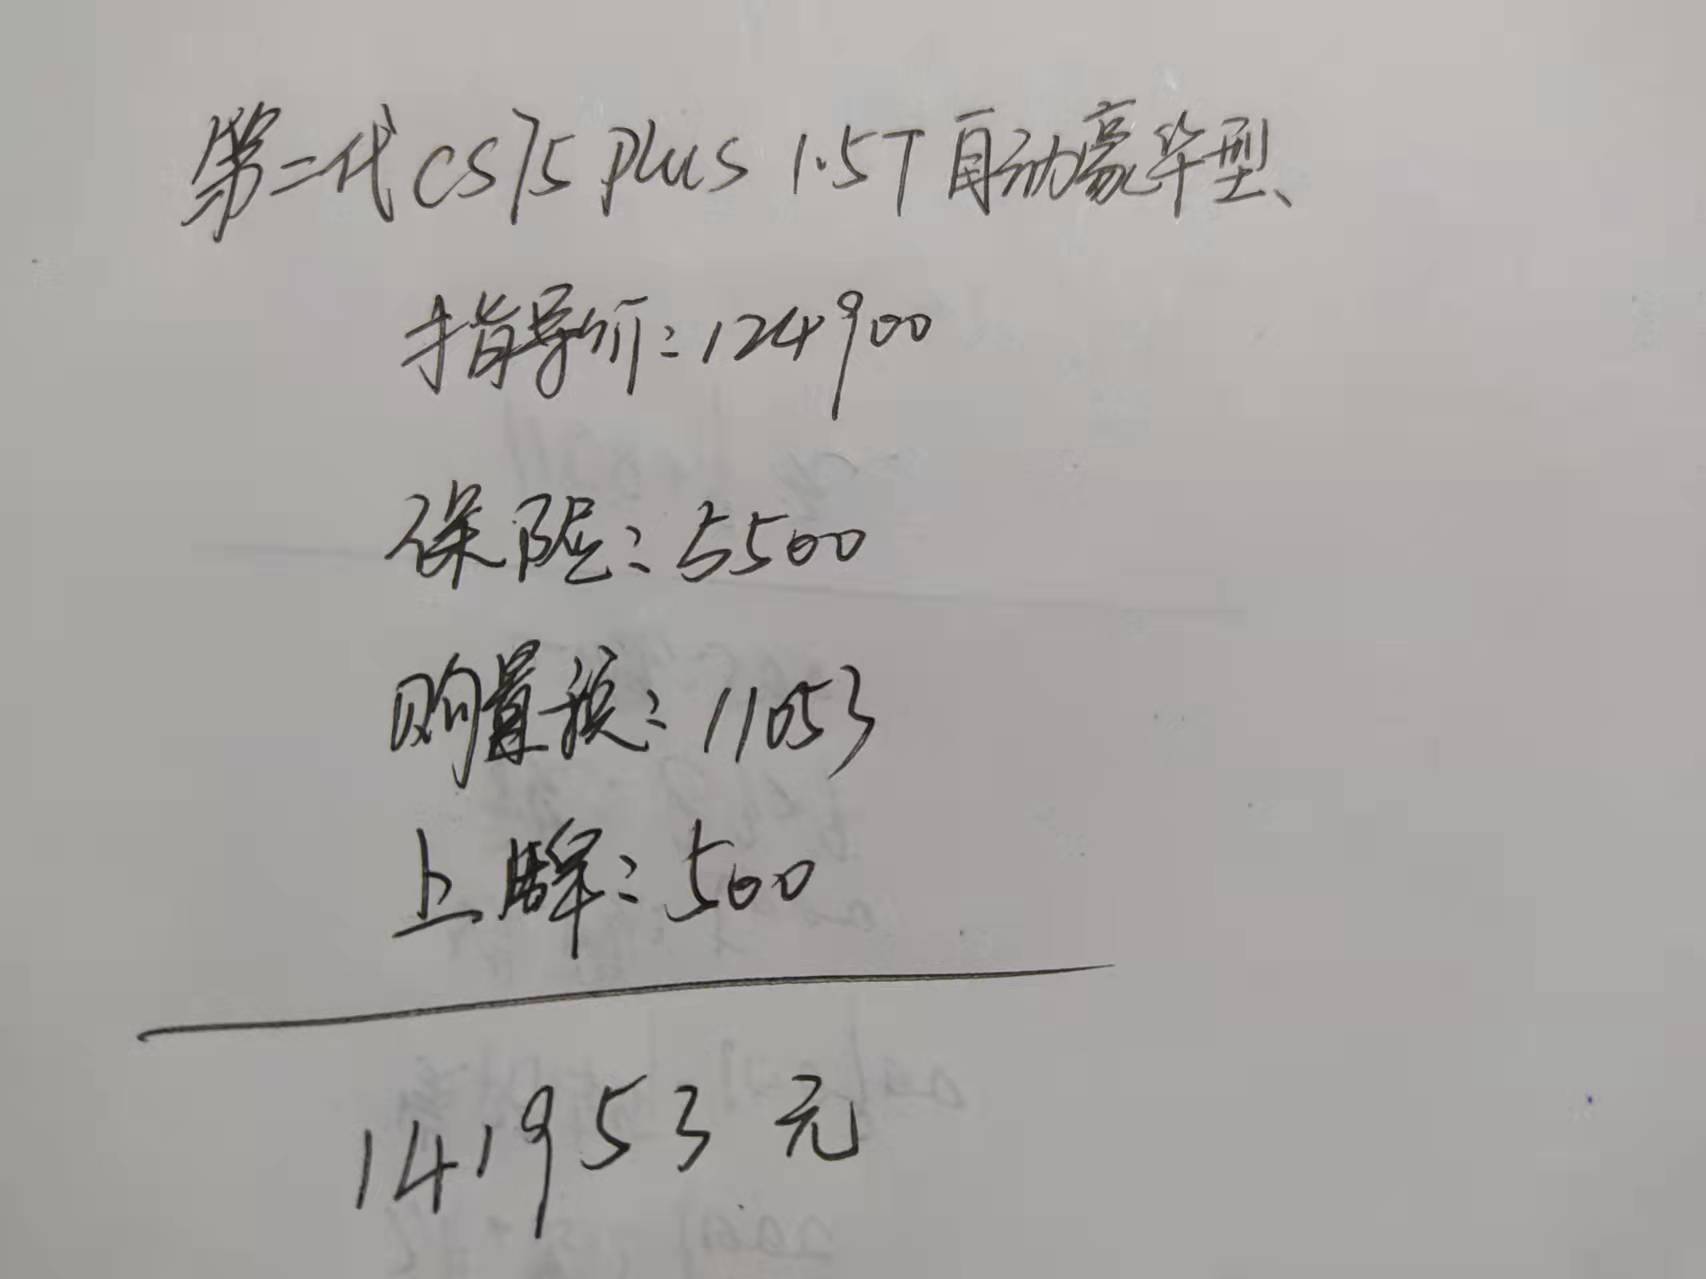 第二代CS75 plus 1.5T自动豪华型
指导价:124900
保险:5500
购置税:11053
上牌:500
141953元